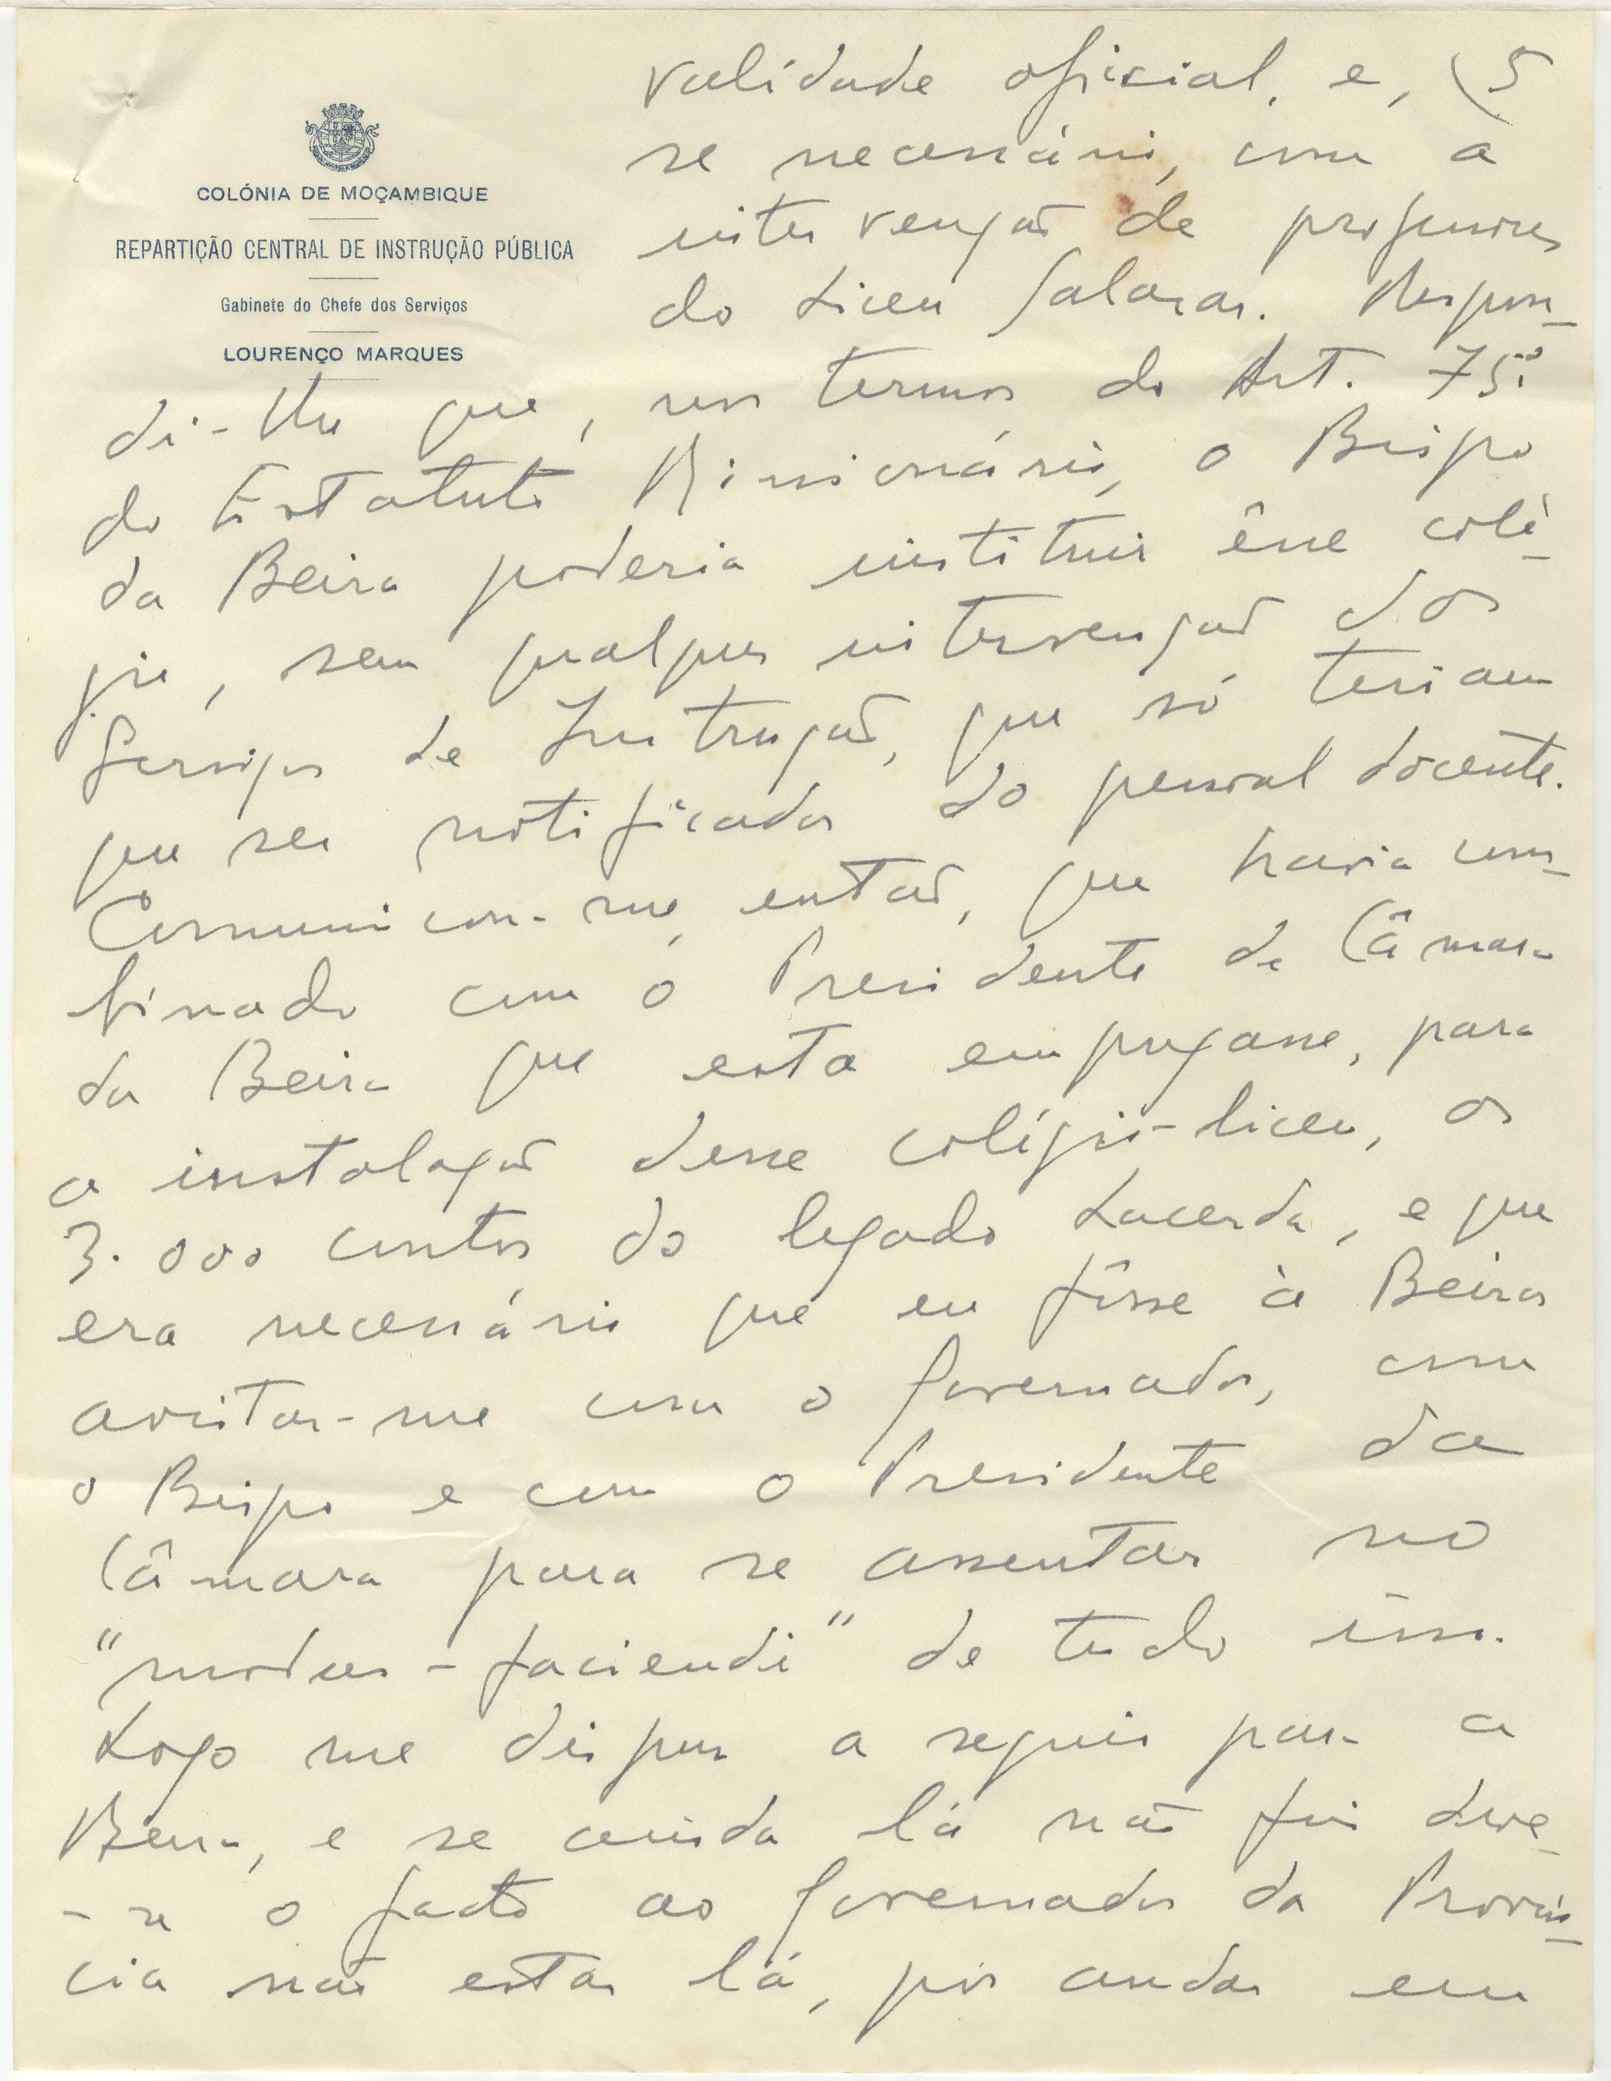 COLÓNIA DE MOÇAMBIQUE
REPARTIÇÃO CENTRAL DE INSTRUÇÃO PÚBLICA
Gabinete do Chefe dos Serviços
LOURENÇO MARQUES
(5
validade oficial, e,
se necessário, com a
intervenção de professores
do Liceu Salazar. Respon-
di-lhe que, nos termos do Art. 75º
do Estatuto Missionário, o Bispo
da Beira poderia instituir êsse colé-
gio, sem qualquer intervenção dos
Serviços de Instrução, que só teriam
que ser notificados do pessoal docente.
Comunicou-me, então, que havia com-
binado com o Presidente da Câmara
da Beira que esta empregasse, para
a instalação desse colégio-liceu, os
3.000 contos do legado Lacerda, e que
era necessário que eu fôsse à Beira
avistar-me com o Governador, com
o Bispo e com o Presidente da
Câmara para se assentar no
"modus-faciendi" de tudo isso.
Logo me dispus a seguir para a
Beira, e se ainda lá não fui deve-
-se o facto ao Governador da Provín-
cia não estar lá, por andar em